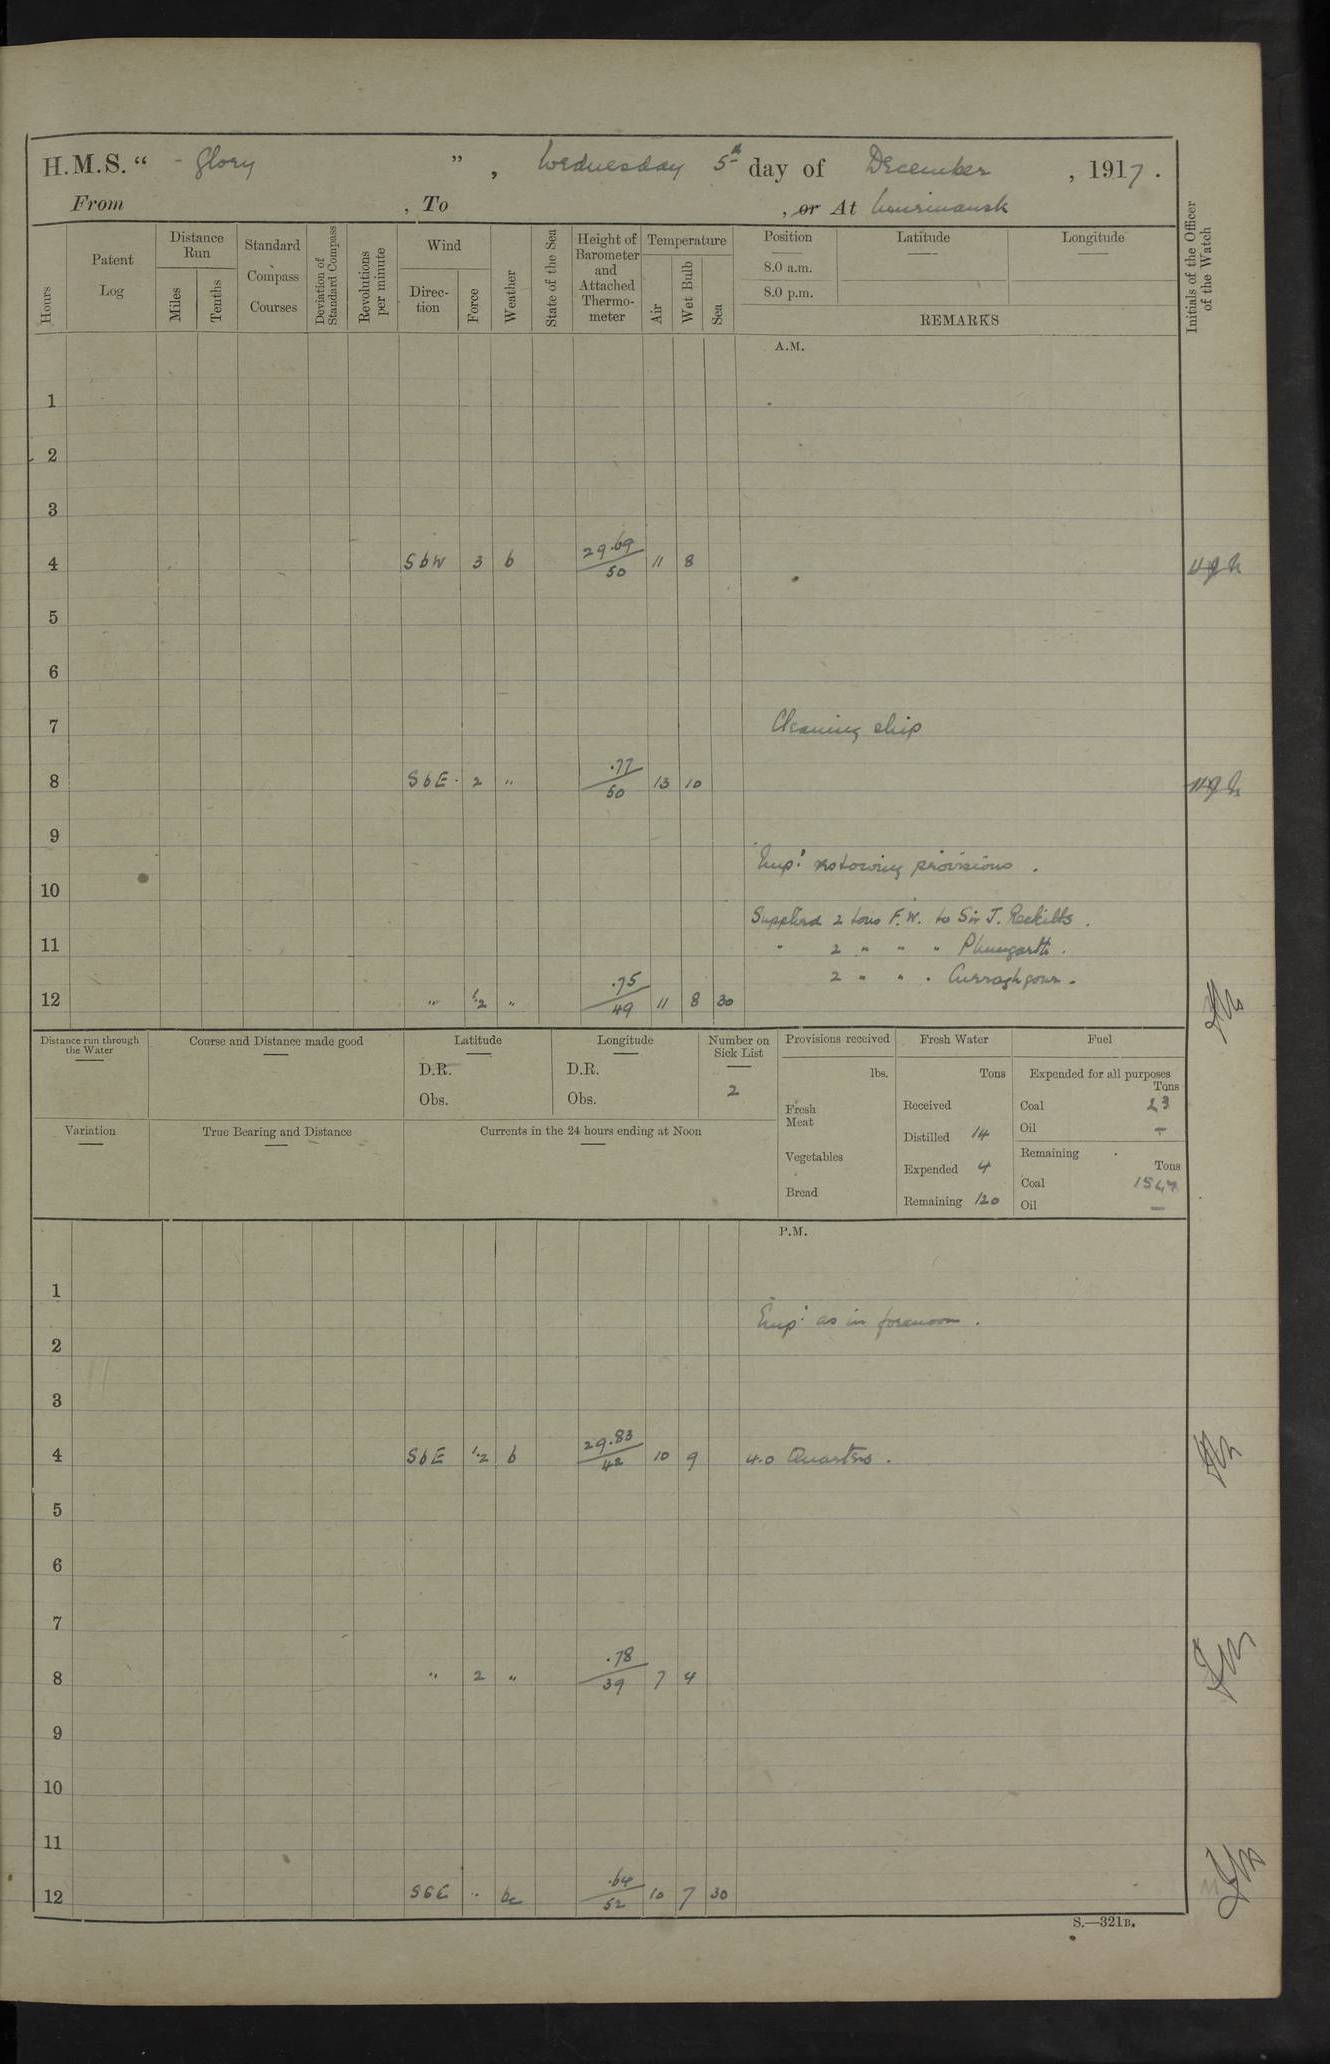 H.M.S. “ Glory ”, Wednesday 5th day of December, 1917.
From , To , or At Mourmansk
Hours
Patent Log
Distance Run
Miles
Tenths
Standard Compass Courses
Deviation of Standard Compass
Revolutions per minute
Wind
Direction
Force
Weather
State of the Sea
Height of Barometer and Attached Thermometer
Temperature
Air
Wet Bulb
Sea
Position
8.0 a.m.
8.0 p.m.
Latitude
Longitude
REMARKS
Initials of the Officer of the Watch
A.M.
1
2
3
4 SbW 3 b 29.69/50 11 8
5
6
7 Cleaning ship
8 SbE 2 " .77/50 13 10
9
Emp: restowing provisions.
10
Supplied 2 tons F.W. to Sir J. Reckitts.
11 " 2 " " " Plumgarth.
2 " " " Curraghgour.
12 " 1.2 " .75/49 11 8 30
Distance run through the Water
Course and Distance made good
Latitude
D.R.
Obs.
Longitude
D.R.
Obs.
Number on Sick List
2
Provisions received
lbs.
Fresh Meat
Vegetables
Bread
Fresh Water
Tons
Received
Distilled 14
Expended 4
Remaining 120
Fuel
Expended for all purposes
Tons
Coal 23
Oil —
Remaining
Tons
Coal
Oil —
Variation
True Bearing and Distance
Currents in the 24 hours ending at Noon
P.M.
1
Emp: as in forenoon.
2
3
4 SbE 1.2 b 29.83/42 10 9 4.0 Quarters.
5
6
7
8 " 2 " .78/39 7 4
9
10
11
12 SbE " bc .64/52 10 7 30
S.—321B.